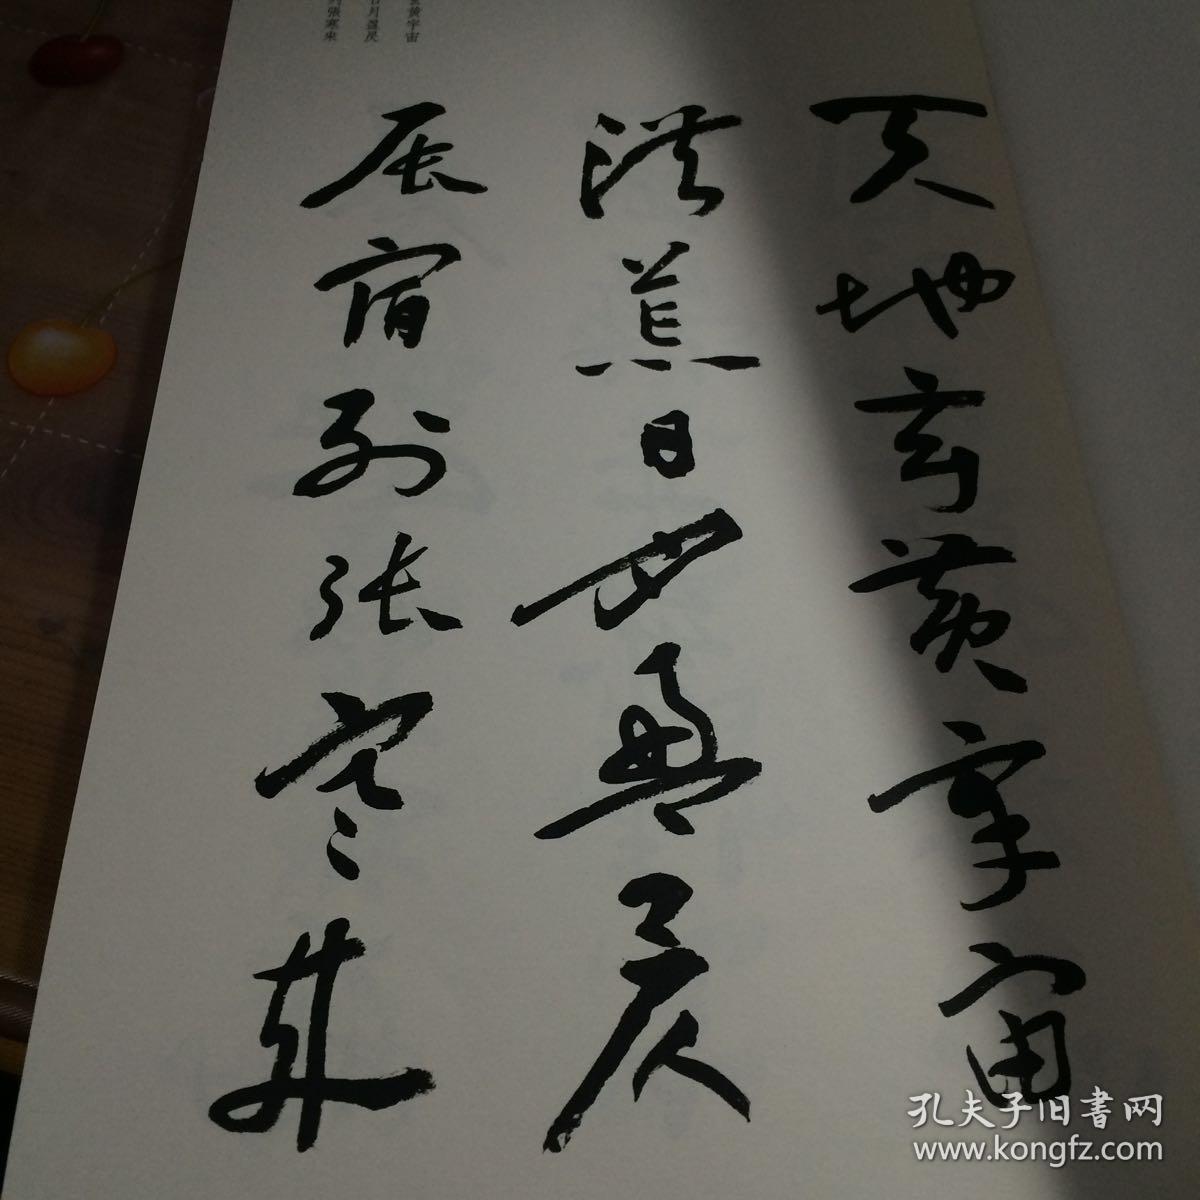 天地玄黄宇宙
洪荒日月盈昃
辰宿列张寒来
玄黄宇宙
日月盈昃
列張寒来
孔夫子旧書网
www.kongfz.com